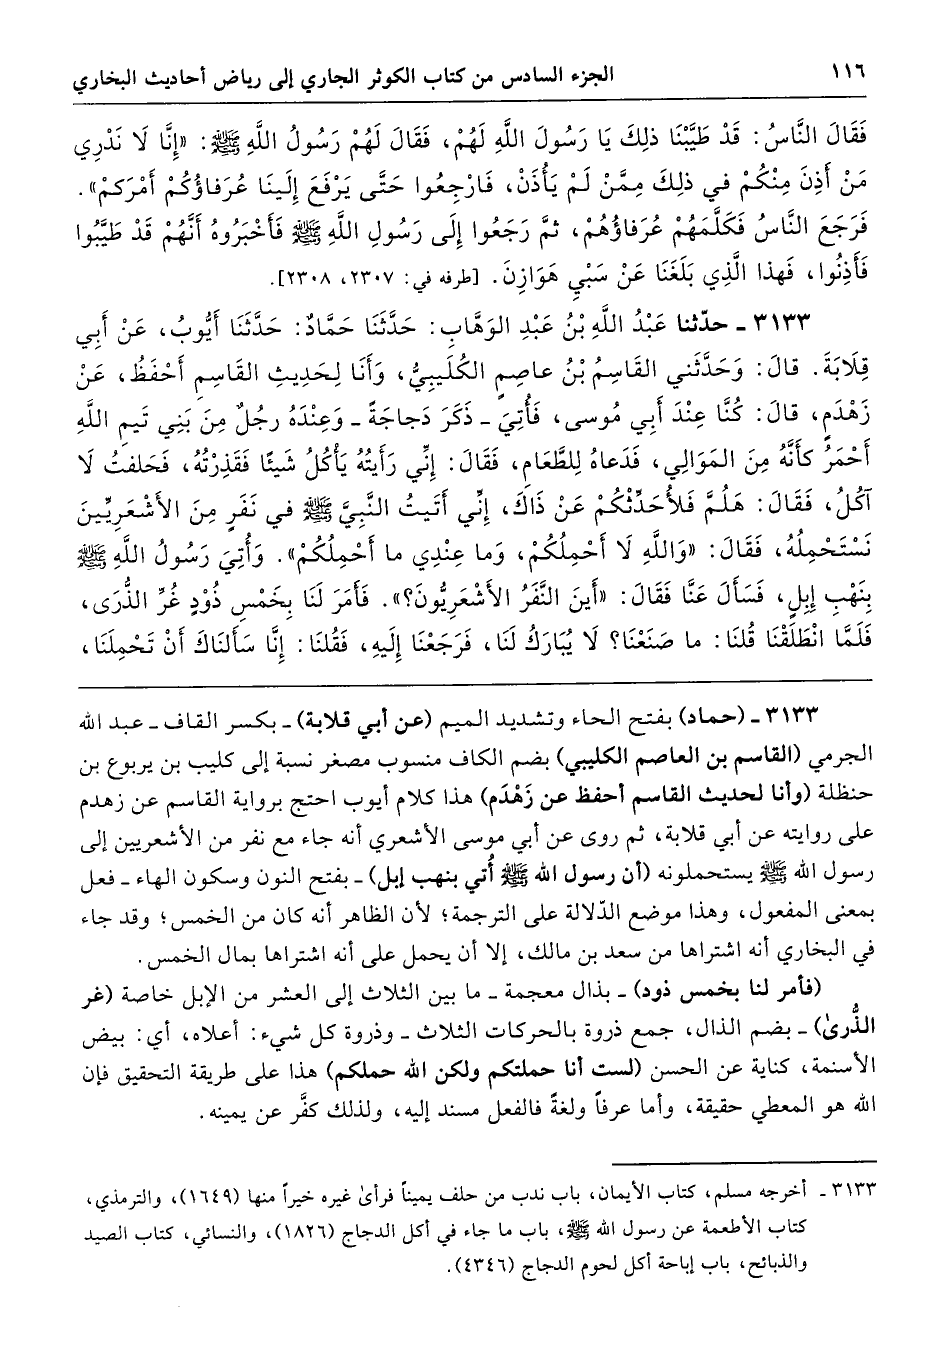 ١١٦
الجزء السادس من كتاب الكوثر الجاري إلى رياض أحاديث البخاري
فَقَالَ النَّاسُ: قَدْ طَيَّبْنَا ذلِكَ يَا رَسُولَ اللَّهِ لَهُمْ، فَقَالَ لَهُمْ رَسُولُ اللَّهِ ﷺ: «إِنَّا لَا نَدْرِي
مَنْ أَذِنَ مِنْكُمْ في ذلِكَ مِمَّنْ لَمْ يَأْذَنْ، فَارْجِعُوا حَتَّى يَرْفَعَ إِلَينَا عُرَفاؤُكُمْ أَمْرَكمْ».
فَرَجَعَ النَّاسُ فَكَلَّمَهُمْ عُرَفاؤُهُمْ، ثمَّ رَجَعُوا إِلَى رَسُولِ اللَّهِ ﷺ فَأَخْبَرُوهُ أَنَّهُمْ قَدْ طَيَّبُوا
فَأَذِنُوا، فَهذا الَّذِي بَلَغَنَا عَنْ سَبْيِ هَوَازِنَ. [طرفه في: ٢٣٠٧، ٢٣٠٨].
٣١٣٣ ـ حدّثنا عَبْدُ اللَّهِ بْنُ عَبْدِ الوَهَّابِ: حَدَّثَنَا حَمَّادٌ: حَدَّثَنَا أَيُّوبُ، عَنْ أَبِي
قِلَابَةَ. قالَ: وَحَدَّثَني القَاسِمُ بْنُ عاصِمٍ الكُلَيبِيُّ، وَأَنَا لِحَدِيثِ القَاسِمِ أَحْفَظُ، عَنْ
زَهْدَمٍ، قالَ: كُنَّا عِنْدَ أَبِي مُوسى، فَأُتِيَ ـ ذَكَرَ دَجاجَةً ـ وَعِنْدَهُ رجُلٌ مِنَ بَنِي تَيمِ اللَّهِ
أَحْمَرُ كَأَنَّهُ مِنَ المَوَالِي، فَدَعاهُ لِلطَّعَامِ، فَقَالَ: إِنِّي رَأَيتُهُ يَأْكُلُ شَيئًا فَقَذِرْتُهُ، فَحَلفتُ لَا
آكُلُ، فَقَالَ: هَلُمَّ فَلأُحَدِّثْكُمْ عَنْ ذَاكَ، إِنِّي أَتَيتُ النَّبِيَّ ﷺ في نَفَرٍ مِنَ الأَشْعَرِيِّينَ
نَسْتَحْمِلُهُ، فَقَالَ: «وَاللَّهِ لَا أَحْمِلُكُمْ، وَما عِنْدِي ما أَحْمِلُكُمْ». وَأُتِيَ رَسُولُ اللَّهِ ﷺ
بِنَهْبِ إِبِلٍ، فَسَأَلَ عَنَّا فَقَالَ: «أَينَ النَّفَرُ الأَشْعَرِيُّونَ؟». فَأَمَرَ لَنَا بِخَمْسِ ذَوْدٍ غُرِّ الذُّرَى،
فَلَمَّا انْطَلَقْنَا قُلنَا: ما صَنَعْنَا؟ لَا يُبَارَكُ لَنَا، فَرَجَعْنَا إِلَيهِ، فَقُلنَا: إِنَّا سَأَلنَاكَ أَنْ تَحْمِلَنَا،
٣١٣٣ ـ (حماد) بفتح الحاء وتشديد الميم (عن أبي قلابة) ـ بكسر القاف ـ عبد الله
الجرمي (القاسم بن العاصم الكليبي) بضم الكاف منسوب مصغر نسبة إلى كليب بن يربوع بن
حنظلة (وأنا لحديث القاسم أحفظ عن زَهْدَم) هذا كلام أيوب احتج برواية القاسم عن زهدم
على روايته عن أبي قلابة، ثم روى عن أبي موسى الأشعري أنه جاء مع نفر من الأشعريين إلى
رسول الله ﷺ يستحملونه (أن رسول الله ﷺ أُتي بنهب إبل) ـ بفتح النون وسكون الهاء ـ فعل
بمعنى المفعول، وهذا موضع الدّلالة على الترجمة؛ لأن الظاهر أنه كان من الخمس؛ وقد جاء
في البخاري أنه اشتراها من سعد بن مالك، إلا أن يحمل على أنه اشتراها بمال الخمس.
(فأمر لنا بخمس ذود) ـ بذال معجمة ـ ما بين الثلاث إلى العشر من الإبل خاصة (غر
الذُّرىٰ) ـ بضم الذال، جمع ذروة بالحركات الثلاث ـ وذروة كل شيء: أعلاه، أي: بيض
الأسنمة، كناية عن الحسن (لست أنا حملتكم ولكن الله حملكم) هذا على طريقة التحقيق فإن
الله هو المعطي حقيقة، وأما عرفاً ولغةً فالفعل مسند إليه، ولذلك كفَّر عن يمينه.
٣١٣٣ ـ أخرجه مسلم، كتاب الأيمان، باب ندب من حلف يميناً فرأىٰ غيره خيراً منها (١٦٤٩)، والترمذي،
كتاب الأطعمة عن رسول الله ﷺ، باب ما جاء في أكل الدجاج (١٨٢٦)، والنسائي، كتاب الصيد
والذبائح، باب إباحة أكل لحوم الدجاج (٤٣٤٦).